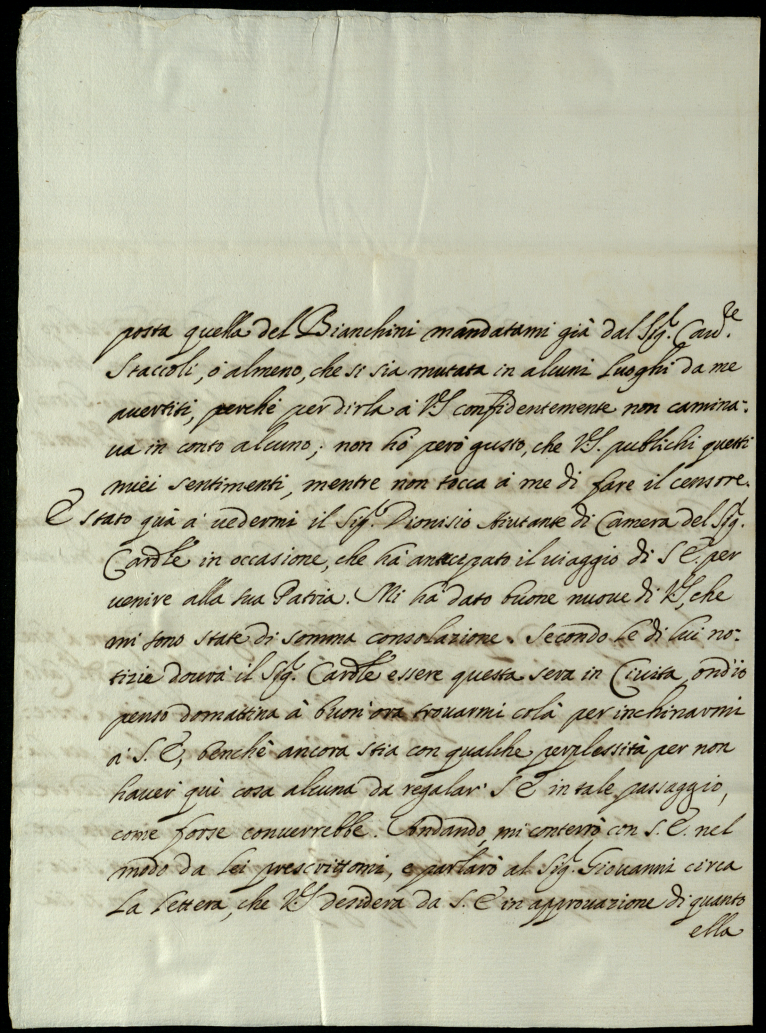 posta quella del Bianchini mandatami già dal Sigr. Cavre.
Staccoli, ò almeno, che si sia mutata in alcuni Luoghi da me
avertiti, perche per dirla à VS confidentemente non camina-
va in conto alcuno; non hò però gusto, che VS. publichi questi
miei sentimenti, mentre non tocca à me di fare il censore.
È stato quà à vedermi il Sigr. Dionisio Aiutante di Camera del Sigr.
Cardle in occasione, che hà anticipato il viaggio di S E. per
venire alla sua Patria. Mi hà dato buone nuove di VS, che
mi sono state di somma consolazione. Secondo le di lui no-
tizie dovrà il Sigr. Cardle essere questa sera in Civita, ond'io
penso domattina à buon'ora trovarmi colà per inchinarmi
à S. E, benche ancora stia con qualche perplessità per non
haver quì cosa alcuna da regalar' S E in tale passaggio,
come forse converrebbe. Andando, mi conterrò con S. E. nel
modo da Lei prescrittomi, e parlarò al Sigr. Giovanni circa
La Lettera, che VS desidera da S. E in approvazione di quanto
ella